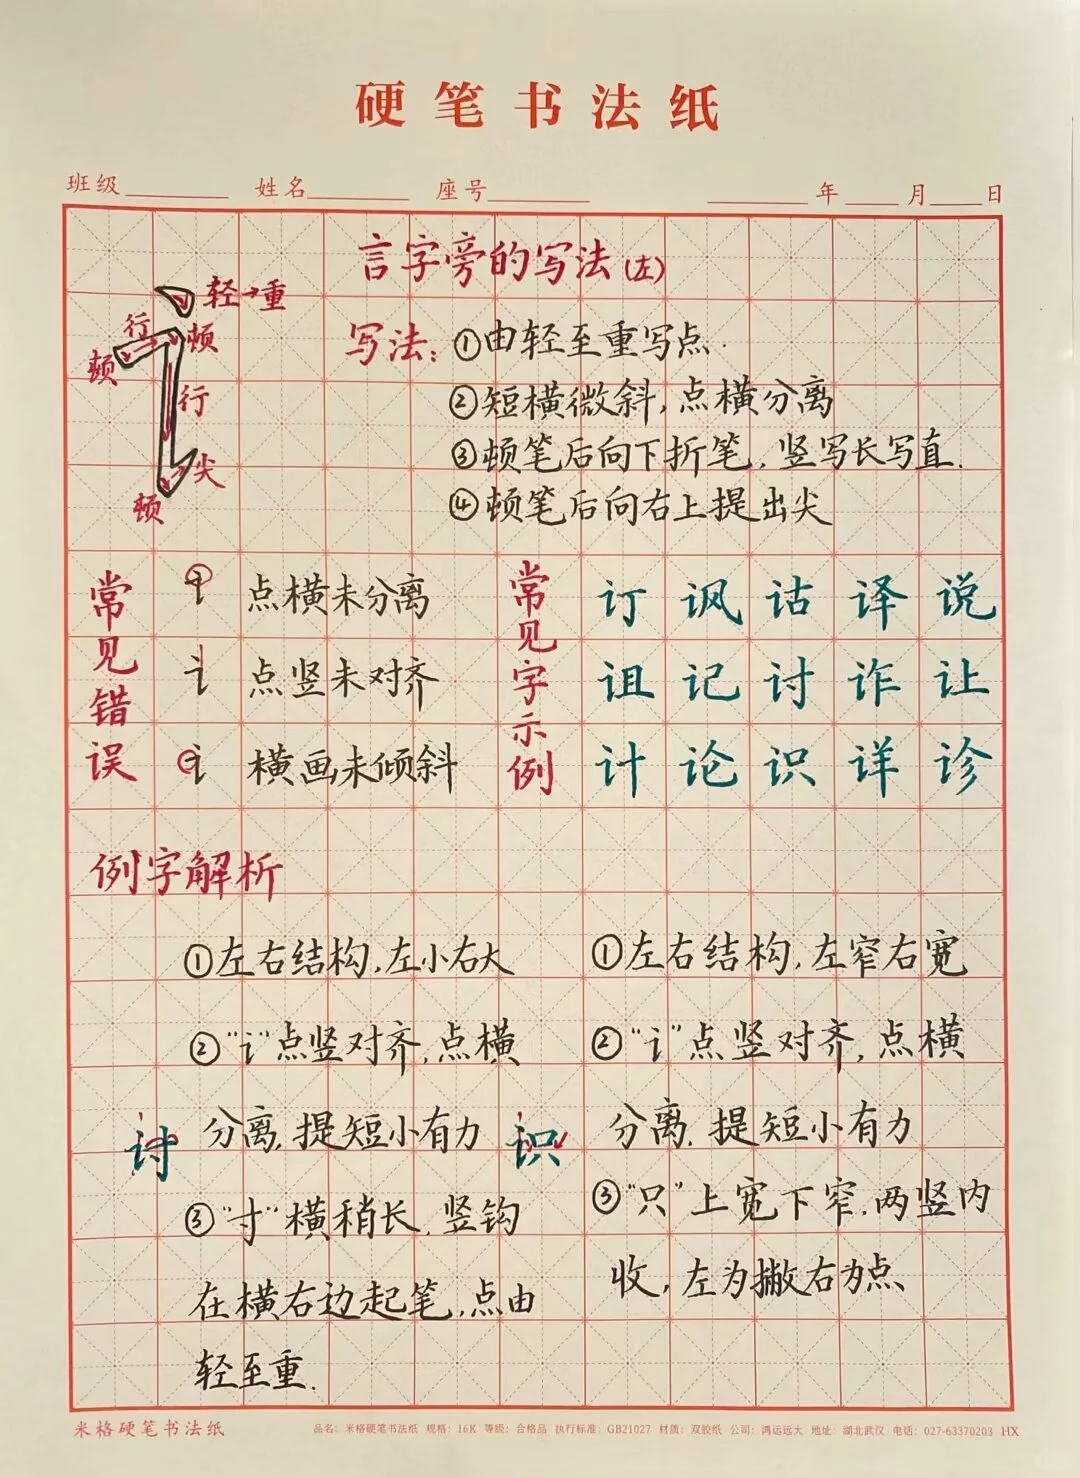 硬笔书法纸
班级 姓名 座号 年 月 日
言字旁的写法(左)
轻→重
行
顿
顿
行
尖
顿
写法：①由轻至重写点.
②短横微斜,点横分离
③顿笔后向下折笔,竖写长写直.
④顿笔后向右上提出尖
常见错误
讠 点横未分离
讠 点竖未对齐
讠 横画未倾斜
常见字示例
订 讽 诂 译 说
诅 记 讨 诈 让
计 论 识 详 诊
例字解析
讨
①左右结构,左小右大
②“讠”点竖对齐,点横
分离,提短小有力
③“寸”横稍长,竖钩
在横右边起笔,点由
轻至重.
识
①左右结构,左窄右宽
②“讠”点竖对齐,点横
分离,提短小有力
③“只”上宽下窄,两竖内
收,左为撇右为点、
米格硬笔书法纸
品名：米格硬笔书法纸 规格：16K 等级：合格品 执行标准：GB21027 材质：双胶纸 公司：鸿运远大 地址：湖北武汉 电话：027-63370203 HX